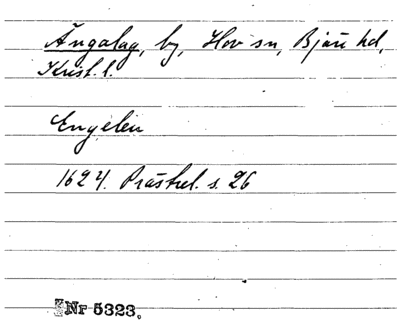 Ängalag, by, Hov sn, Bjäre hd,
Krist. l.
Engelau
1624. Prästrel. s. 26
Nr 5323.